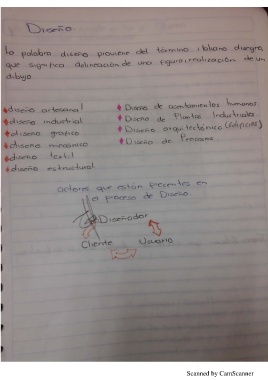 Diseño
La palabra diseño proviene del término italiano disegno,
que significa delineación de una figura, realización de un
dibujo.
diseño artesanal
diseño industrial
diseño gráfico
diseño mecánico
diseño textil
diseño estructural
Diseño de asentamientos humanos
Diseño de Plantas Industriales
Diseño arquitectónico (edificios)
Diseño de Procesos
actores que están presentes en
el proceso de Diseño.
Diseñador
Cliente Usuario
Scanned by CamScanner